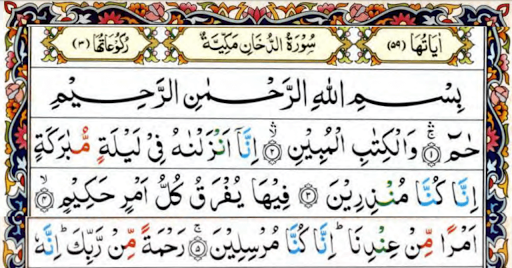 اٰيَاتُهَا (٥٩) سُوْرَةُ الدُّخَانِ مَكِّيَّةٌ رُكُوْعَاتُهَا (٣)
بِسْمِ اللهِ الرَّحْمٰنِ الرَّحِيْمِ
حٰمٓ ۚۛ ﴿١﴾ وَالْكِتٰبِ الْمُبِيْنِ ۙۛ ﴿٢﴾ اِنَّاۤ اَنْزَلْنٰهُ فِيْ لَيْلَةٍ مُّبٰرَكَةٍ
اِنَّا كُنَّا مُنْذِرِيْنَ ﴿٣﴾ فِيْهَا يُفْرَقُ كُلُّ اَمْرٍ حَكِيْمٍ ۙ ﴿٤﴾
اَمْرًا مِّنْ عِنْدِنَا ؕ اِنَّا كُنَّا مُرْسِلِيْنَ ۚ ﴿٥﴾ رَحْمَةً مِّنْ رَّبِّكَ ؕ اِنَّهٗ